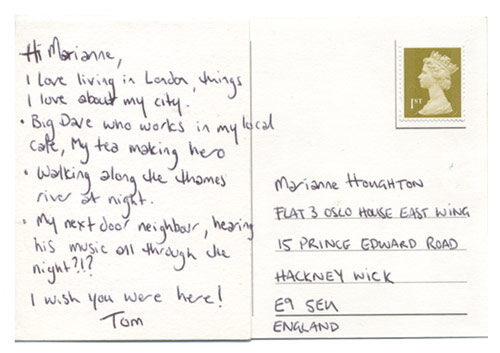 Hi Marianne,
I love living in London, things
I love about my city.
• Big Dave who works in my local
cafe, My tea making hero
• Walking along the thames
river at night.
• My next door neighbour, hearing
his music all through the
night?!?
I wish you were here!
Tom
1ST
Marianne Houghton
FLAT 3 OSLO HOUSE EAST WING
15 PRINCE EDWARD ROAD
HACKNEY WICK
E9 5EN
ENGLAND